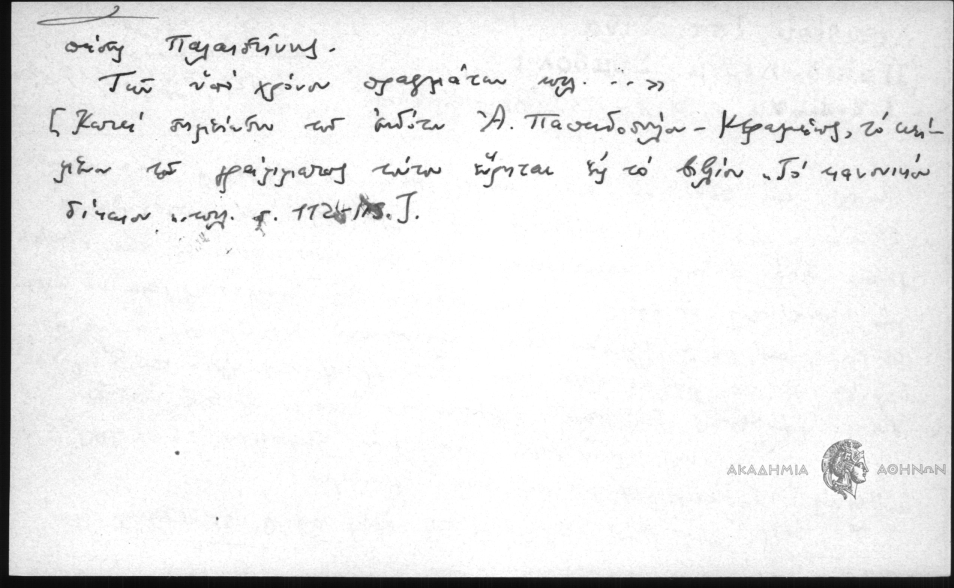 πάσης Παλαιστίνης.
Τῶν ὑπὸ χρόνου πραγμάτων κτλ. ... »
[ Κατὰ σημείωσιν τοῦ ἐκδότου Ἀ. Παπαδοπούλου - Κεραμέως, τὸ κεί-
μενον τοῦ γράμματος τούτου εὕρηται εἰς τὸ βιβλίον „Τὸ κανονικὸν
δίκαιον „ κτλ. σ. 112
ΑΚΑΔΗΜΙΑ ΑΘΗΝΩΝ